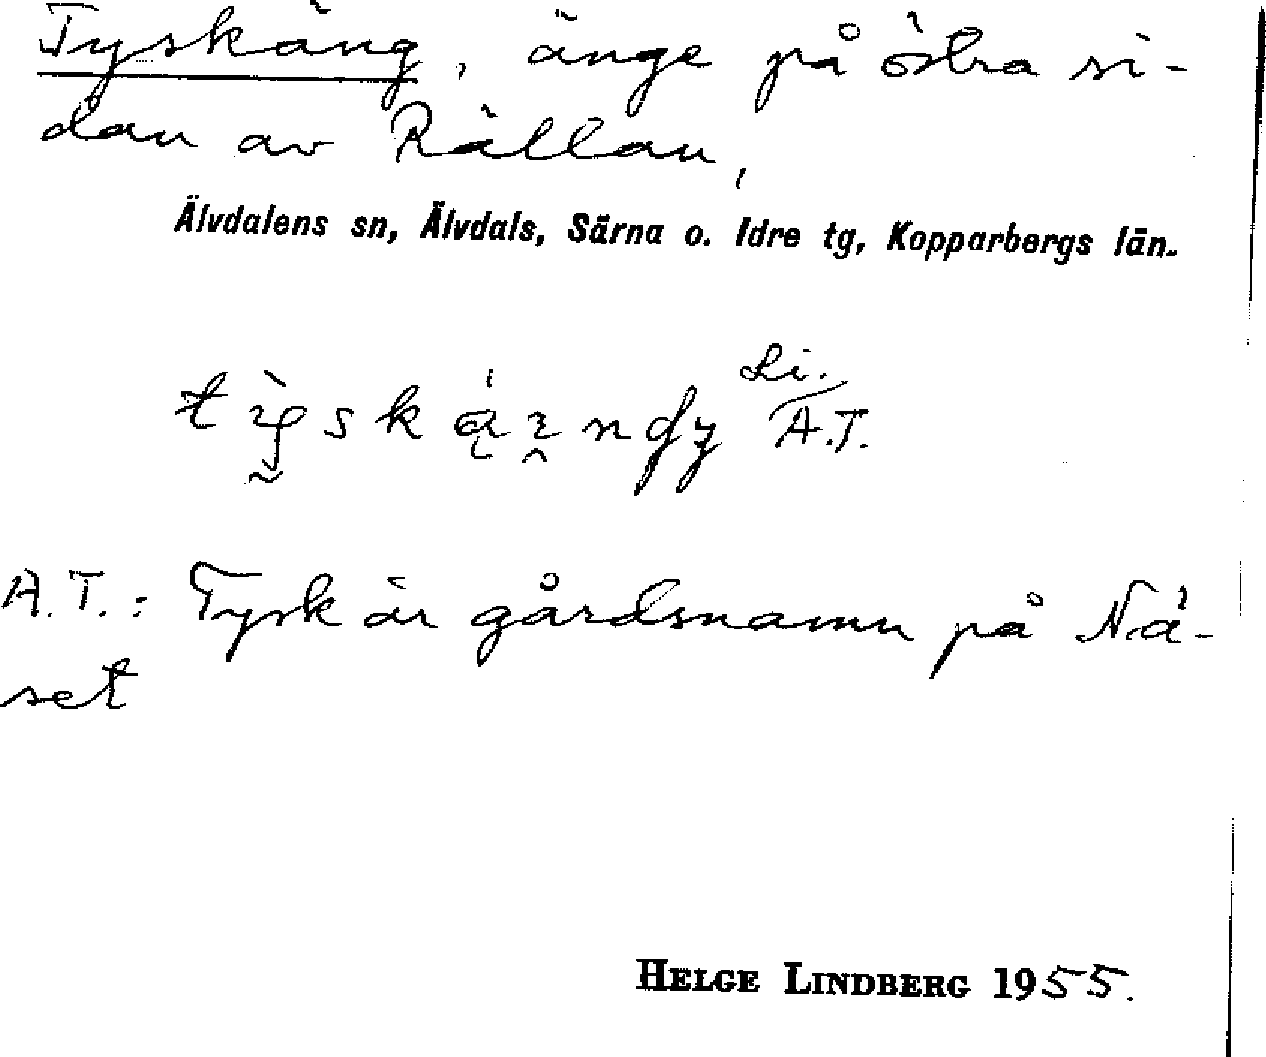 Tyskäng, änge på östra si-
dan av Rällan,
Älvdalens sn, Älvdals, Särna o. Idre tg, Kopparbergs län.
Li.
A.T.
A.T.: Tysk är gårdsnamn på Nä-
set
HELGE LINDBERG 1955.